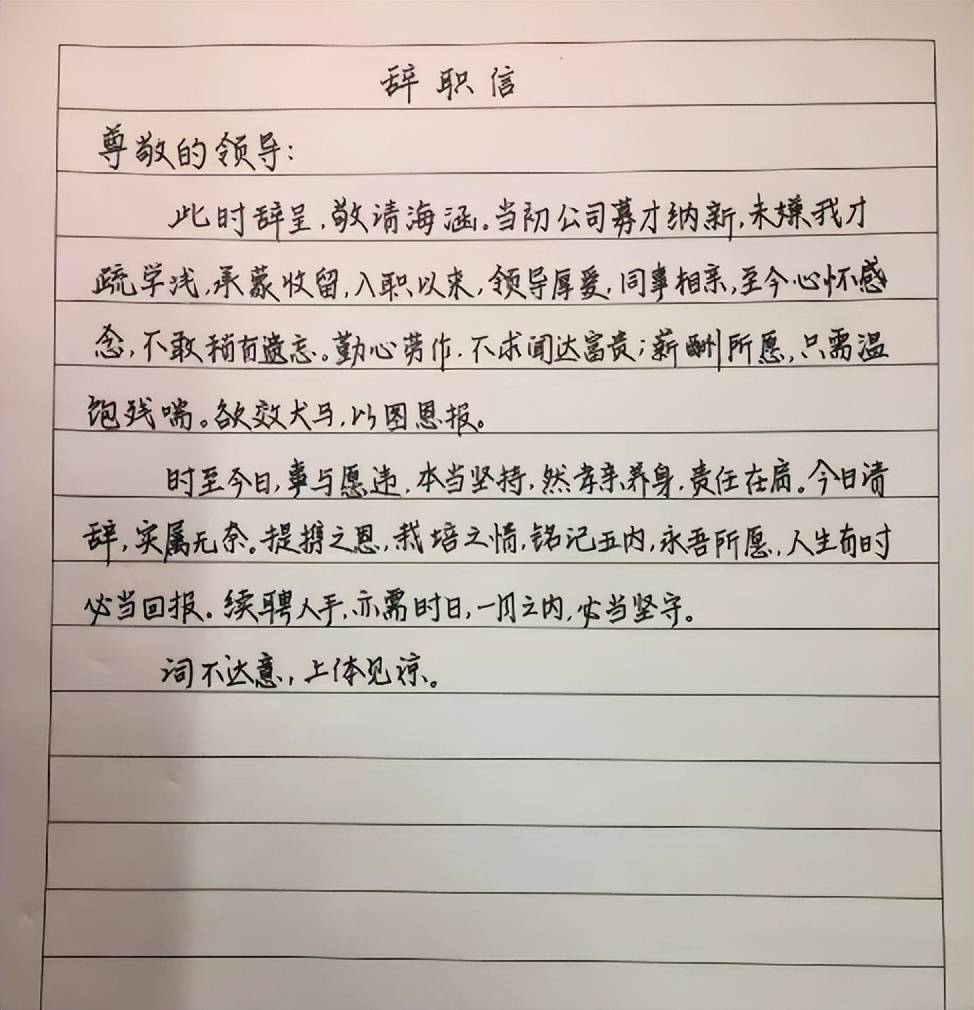 辞职信
尊敬的领导：
此时辞呈，敬请海涵。当初公司募才纳新，未嫌我才
疏学浅，承蒙收留，入职以来，领导厚爱，同事相亲，至今心怀感
念，不敢稍有遗忘。勤心劳作，不求闻达富贵；薪酬所愿，只需温
饱残喘。欲效犬马，以图恩报。
时至今日，事与愿违，本当坚持，然孝亲养身，责任在肩。今日请
辞，实属无奈。提携之恩，栽培之情，铭记五内，永吾所愿，人生有时
必当回报。续聘人手，亦需时日，一月之内，必当坚守。
词不达意，上体见谅。